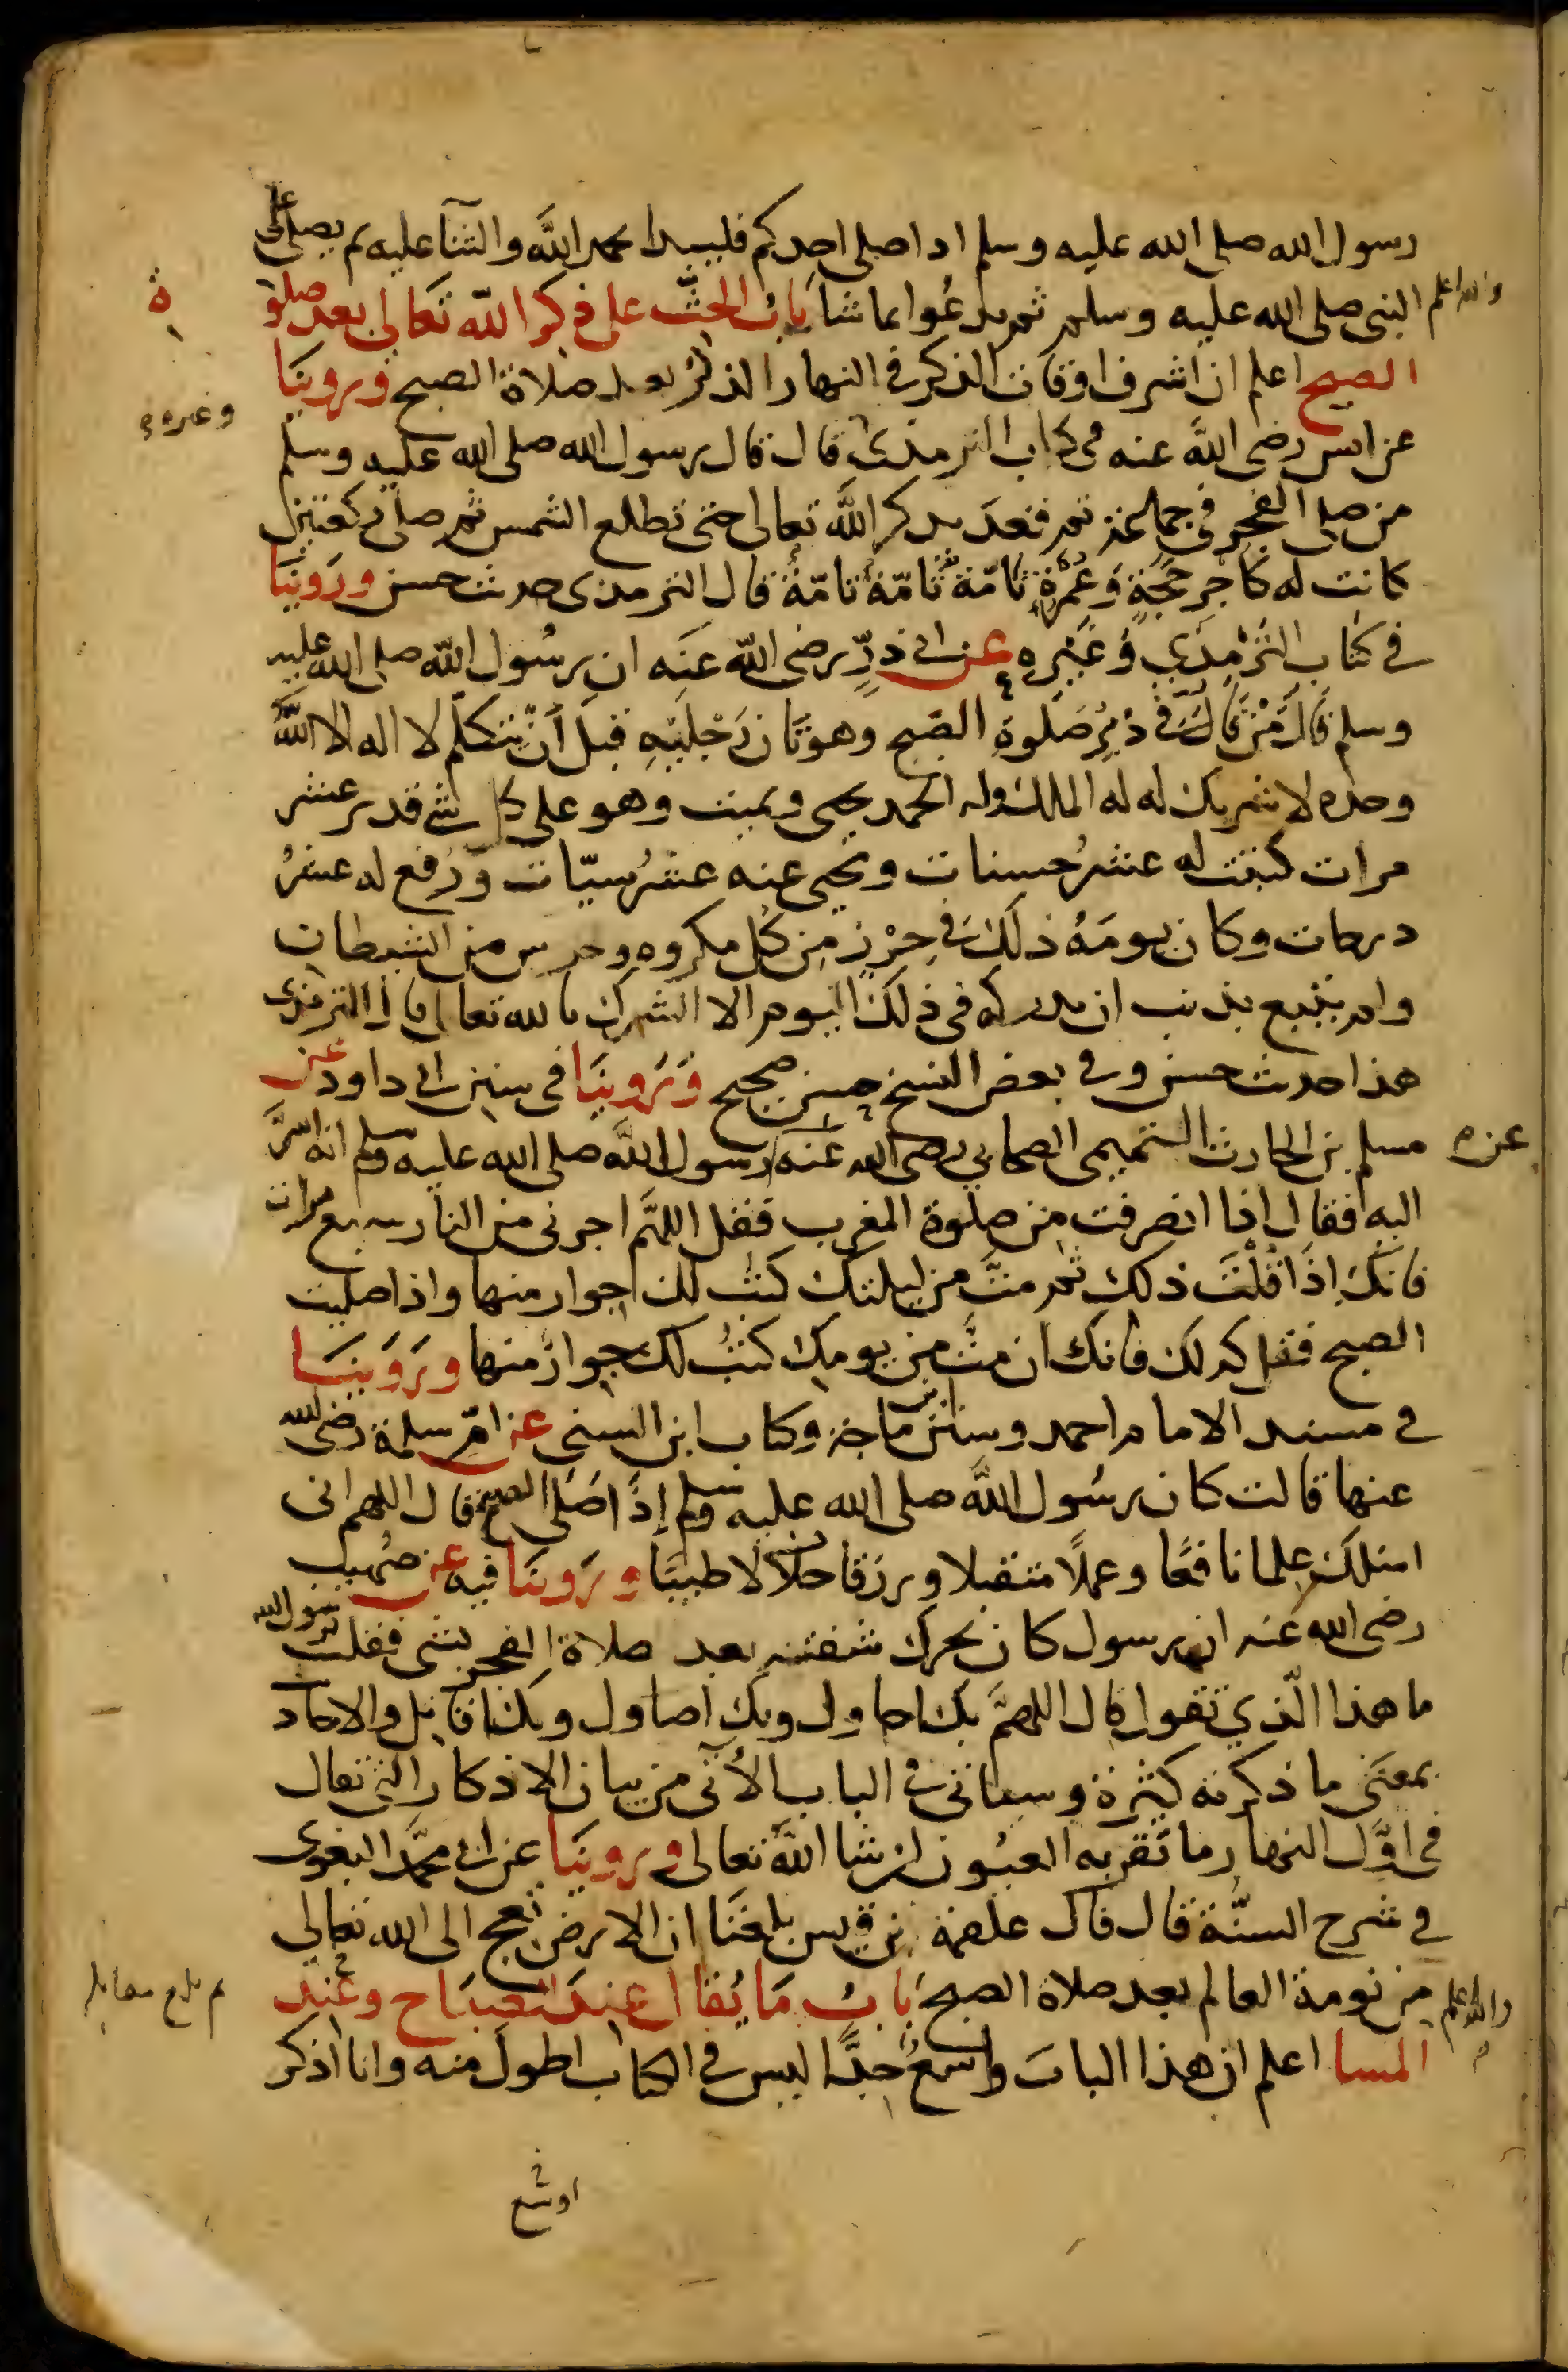 رسول الله صلى الله عليه وسلم اذا صلى احدكم فليبدا بحمد الله والثنآ عليه ثم يصلى على
النبى صلى الله عليه وسلم ثم يدعوا بما شا بَابُ الحثّ على ذكر الله تعالى بعد صلوة
والله اعلم
ة
الصبح اعلم ان اشرف اوقات الذكر فى النهار الذكر بعد صلاة الصبح وروينَا
وغيره
عن انس رضى الله عنه فى كتاب الترمذى قال قال رسول الله صلى الله عليه وسلم
من صلى الفجر فى جماعة ثم قعد يذكر الله تعالى حتى تطلع الشمس ثم صلى ركعتين
كانت له كاجر حَجَّةٍ وَعُمْرَةٍ تامّة تَامّة تامّة قال الترمذى حديث حسن وروينا
فى كتاب التِرْمِذي وَغَيْرِه عن ابى ذرٍّ رضى الله عنه ان رسُول الله صلى الله عليه
وسلم قالَ مَنْ قَالَ فى دُبُرِ صَلوةِ الصبح وهو ثَانٍ رَجْلَيْهِ قبل أن يتكلّم لا اله الا الله
وحده لا شريك له له الملك وله الحمد يحيى ويميت وهو على كل شى قدير عشر
مرات كتبت له عشرُ حسنات ومحى عنه عشرُ سيّات ورُفع له عشرُ
درجات وكان يومَهُ ذلكَ فى حِرْزٍ مِن كُل مكروه وحرس من الشيطان
ولم يتبع بذنب ان يدركه فى ذلك اليوم الا الشرك بالله تعالى قال الترمذى
هذا حديث حسن وفى بعض النسخ حسن صحيح وَرَوينَا فى سنن ابى داود عن
مسلم بن الحارث التميمى الصحابي رضى الله عنه رسول الله صلى الله عليه وسلم انه اسرَّ
عن
اليه فقال اذا انصرفت من صلوة المغرب فقل اللهَّم اجرنى من النار سبع مرات
فانكَ اِذَا قُلْتَ ذلك ثم متَّ من ليلتك كتب لك جوار منها واذا صليت
الصبح فقل كذلك فانك ان متَّ من يومك كتبُ لك جوارٌ منها ورَوَينَا
فى مسند الامام احمد وسنن ابن ماجة وكتاب ابن السنى عن امِّ سلمة رضى الله
عنها قالت كان رسُول الله صلى الله عليه وسلم إذَا صَلى الصبح قال اللهم انى
اسئلك علما نافعًا وعملًا متقبلا ورزقا حلالا طيبًا ورَوينَا فيه عن صُهيب
رضى الله عنه ان رسول كان يحرك شفتيه بعد صلاة الفجر بشى فقلت يرسول الله
ما هذا الّذي تقول قال اللهمَّ بك احاول وبك اصاول وبك اقاتل والاحاد
بمعنَى ما ذكرته كثيرة وسياتى فى الباب الأتى من بيان الاذكار التى تقال
فى اوَّل النهار ما تقر به العيُون ان شا الله تعالى وروينَا عن ابى محمَّد البغوى
فى شرح السنّة قال قال علقمة بن قيس بلغنَا ان الارض تعج الى الله تعالي
من نومة العالم بعد صلاة الصبح بَابُ مَا يُقَال عِندَ الصبَاح وعند
والله اعلم
ثم بلغ مقابلة
المسا اعلم ان هذا البابَ واسعٌ جدًّا ليس فى الكتاب اطول منه وانا اذكر
اوسع